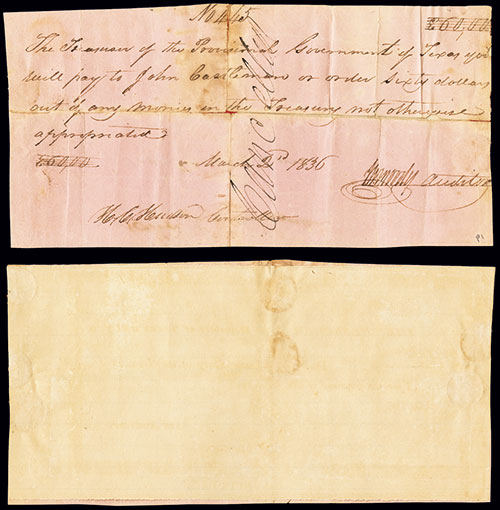 No 445
$60.00
The Treasurer of the Provisional Government of Texas you
will pay to John Castleman or order Sixty dollars
out of any monies in the Treasury not otherwise
appropriated
$60.00
March 2d 1836
Auditor
H. C. Hudson
P1